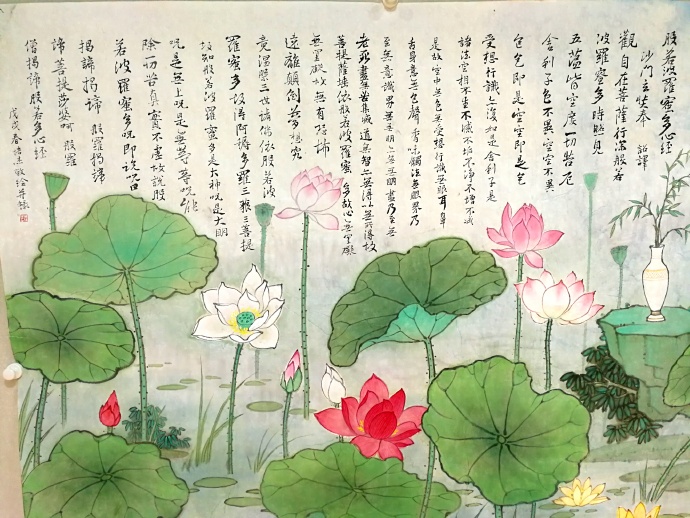 般若波羅蜜多心經
沙門玄奘奉 詔譯
觀自在菩薩行深般若
波羅蜜多時照見
五蘊皆空度一切苦厄
舍利子色不異空空不異
色色即是空空即是色
受想行識亦復如是舍利子是
諸法空相不生不滅不垢不淨不增不減
是故空中無色無受想行識無眼耳鼻
舌身意無色聲香味觸法無眼界乃
至無意識界無無明亦無無明盡乃至無
老死盡無苦集滅道無智亦無得以無所得故
菩提薩埵依般若波羅蜜多故心無罣礙
無罣礙故無有恐怖
遠離顛倒夢想究
竟涅槃三世諸佛依般若波
羅蜜多故得阿耨多羅三藐三菩提
故知般若波羅蜜多是大神咒是大明
咒是無上咒是無等等咒能
除一切苦真實不虛故說般
若波羅蜜多咒即說咒曰
揭諦揭諦 般羅揭諦
諦菩提莎婆訶 般羅
僧揭諦般若多心經
戊戌春 敬繪并錄